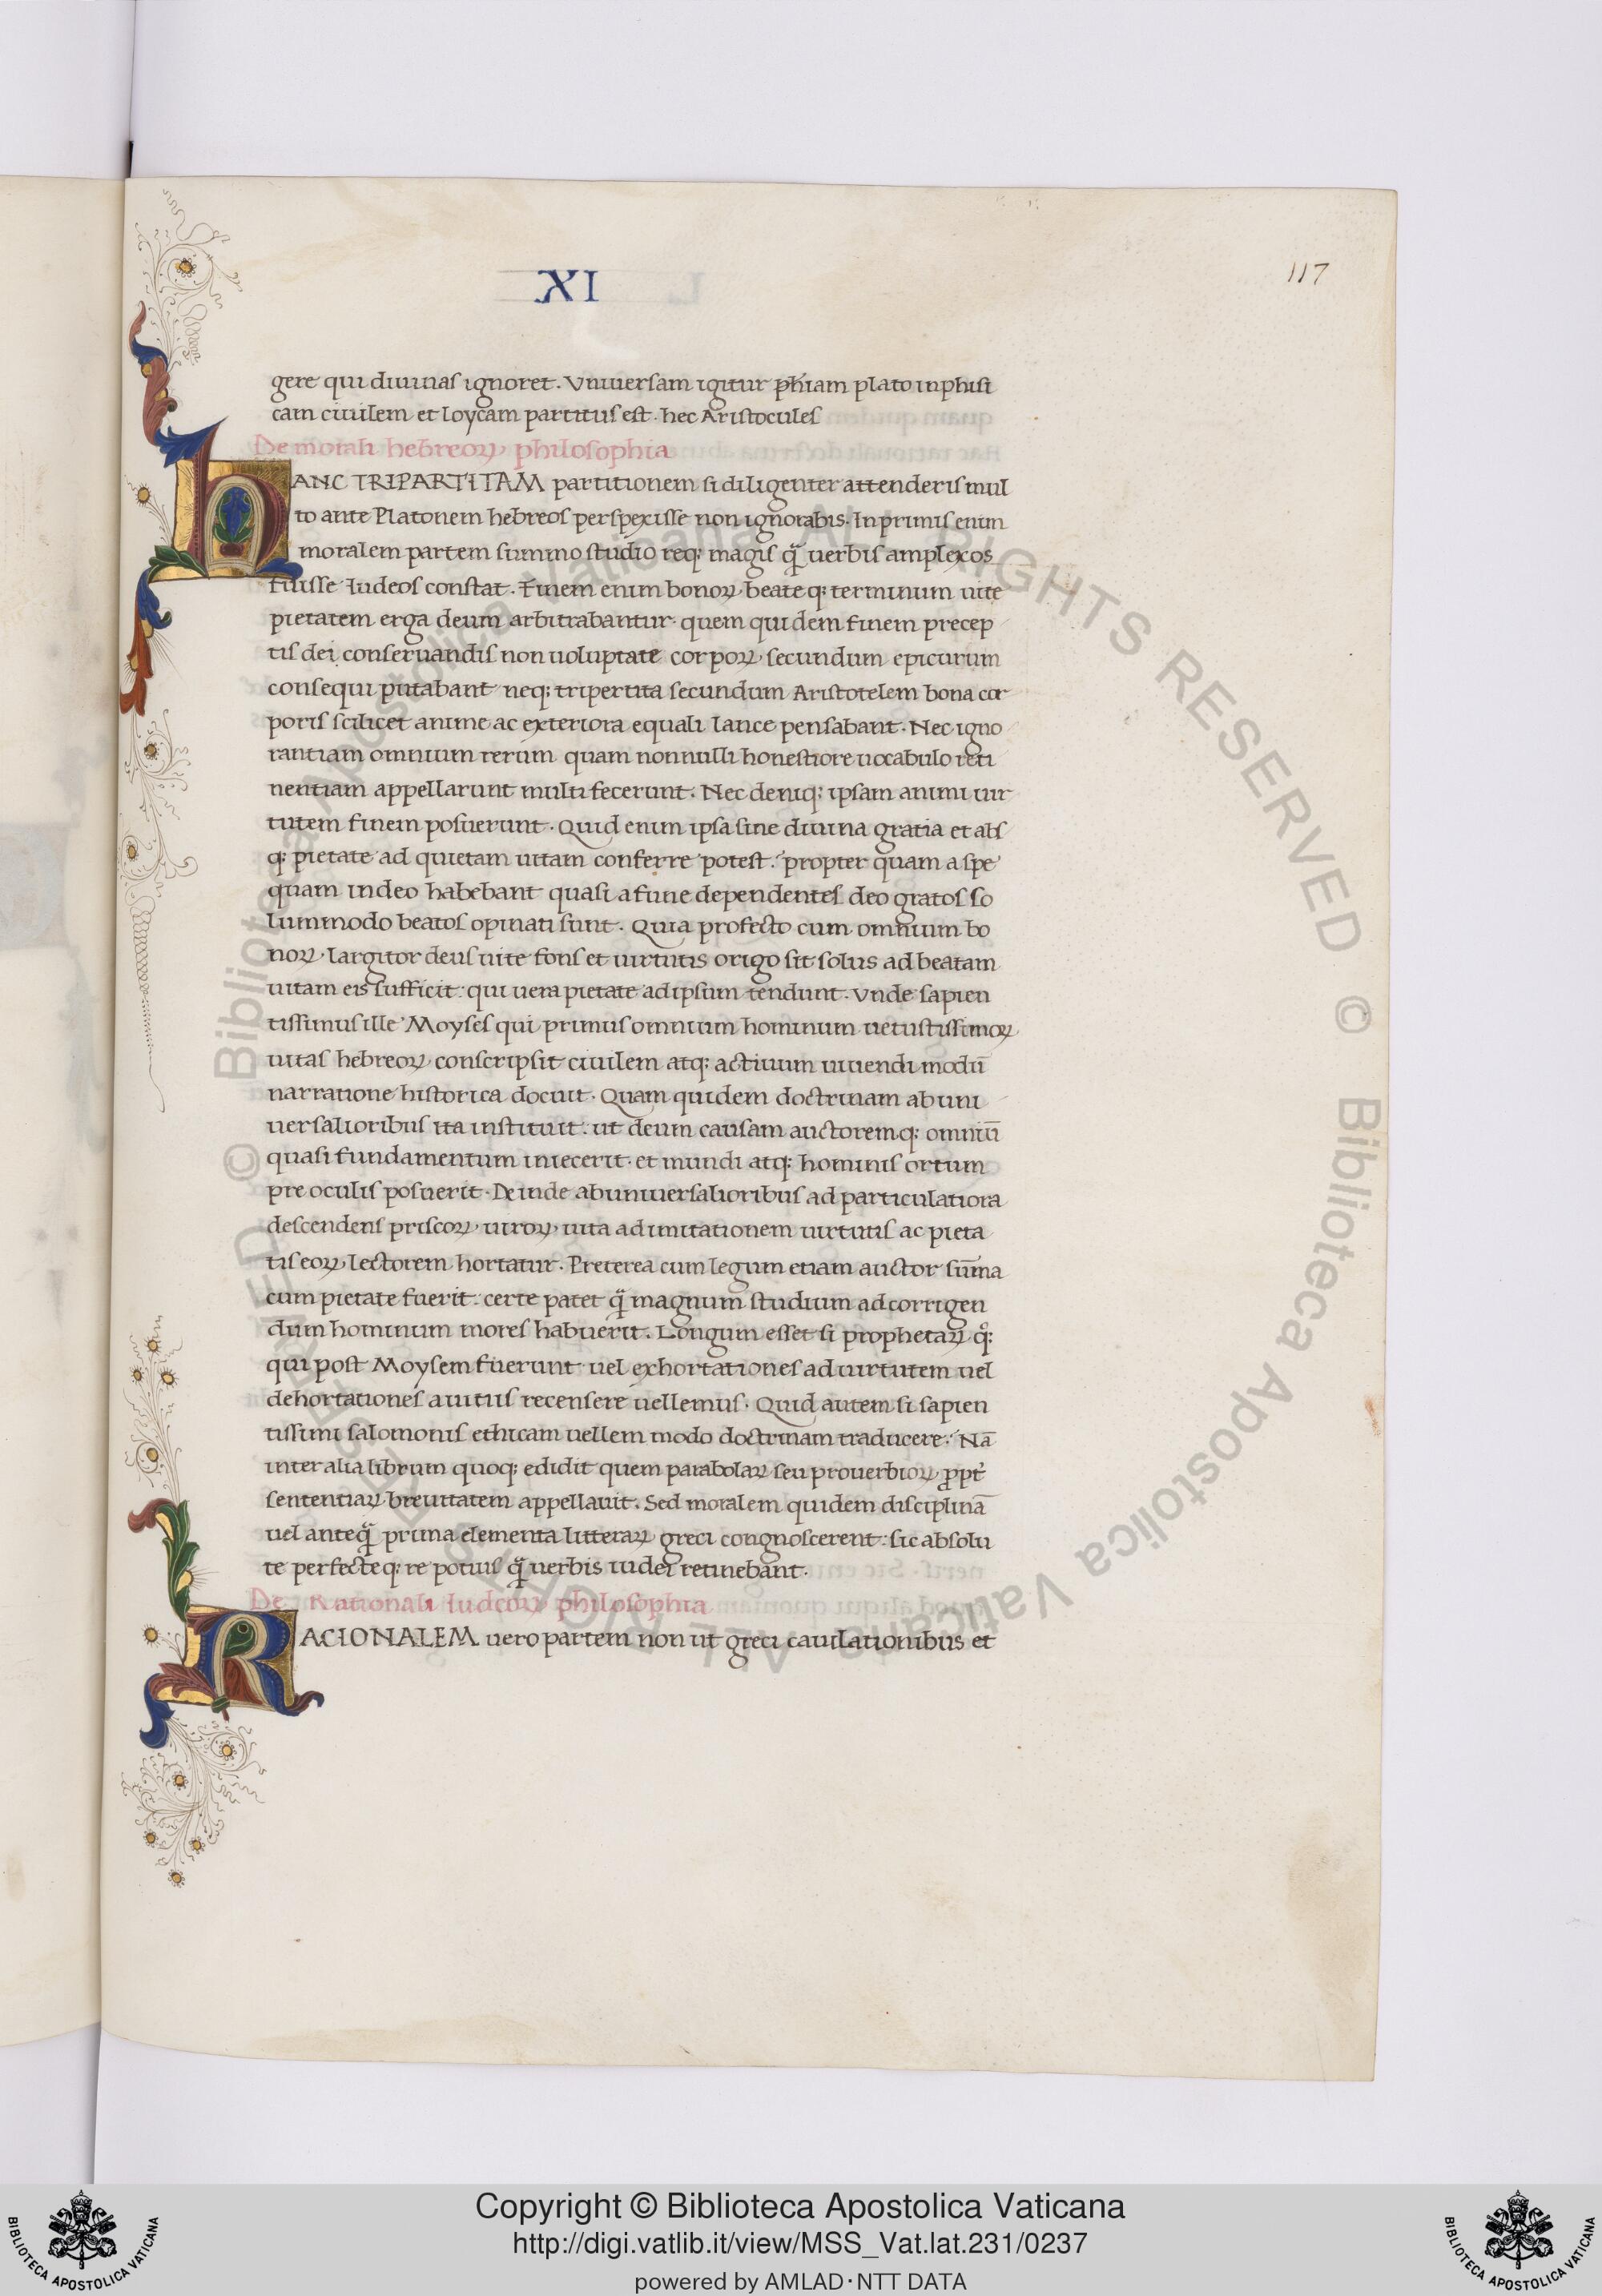 XI
117
gere qui diuinas ignoret. Vniuersam igitur ph̄iam plato in phisi
cam ciuilem et loycam partitus est. hec Aristocules
De morali hebreoꝝ philosophia
HANC TRIPARTITAM partitionem si diligenter attenderis mul
to ante Platonem hebreos perspexisse non ignorabis. In primis enim
moralem partem summo studio req; magis q̄ uerbis amplexos
fuisse Iudeos constat. Finem enim bonoꝝ beate q; terminum uite
pietatem erga deum arbitrabantur. quem quidem finem precep
tis dei conseruandis non uoluptate corpoꝝ secundum epicurum
consequi putabant neq; tripertita secundum Aristotelem bona cor
poris scilicet anime ac exteriora equali lance pensabant. Nec igno
rantiam omnium rerum quam nonnulli honestiore uocabulo reti
nentiam appellarunt multi fecerunt. Nec deniq; ipsam animi uir
tutem finem posuerunt. Quid enim ipsa sine diuina gratia et abs
q; pietate ad quietam uitam conferre potest. propter quam a spe
quam in deo habebant quasi a fune dependentes deo gratos so
lummodo beatos opinati sunt. Quia profecto cum omnium bo
noꝝ largitor deus uite fons et uirtutis origo sit solus ad beatam
uitam eis sufficit: qui uera pietate ad ipsum tendunt. Vnde sapien
tissimus ille Moyses qui primus omnium hominum uetustissimoꝝ
uitas hebreoꝝ conscripsit ciuilem atq; actiuum uiuendi modū
narratione historica docuit. Quam quidem doctrinam ab uni
uersalioribus ita instituit: ut deum causam auctoremq; omniū
quasi fundamentum iniecerit. et mundi atq; hominis ortum
pre oculis posuerit. Deinde ab uniuersalioribus ad particulatiora
descendens priscoꝝ uiroꝝ uita ad imitationem uirtutis ac pieta
tis eoꝝ lectorem hortatur. Preterea cum legum etiam auctor sūma
cum pietate fuerit: certe patet q̄ magnum studium ad corrigen
dum hominum mores habuerit. Longum esset si prophetaꝝ q̊;
qui post Moysem fuerunt uel exhortationes ad uirtutem uel
dehortationes a uitiis recensere uellemus. Quid autem si sapien
tissimi salomonis ethicam uellem modo doctrinam traducere. Nā
inter alia librum quoq; edidit quem parabolaꝝ seu prouerbioꝝ ꝓpt̄
sententiaꝝ breuitatem appellauit. Sed moralem quidem disciplinā
uel anteq̄ prima elementa litteraꝝ greci congnoscerent: sic absolu
te perfecteq; re potius q̄ uerbis iudei retinebant.
De Rationali Iudeoꝝ philosophia
RACIONALEM uero partem non ut greci cauilationibus et
© Biblioteca Apostolica Vaticana ALL RIGHTS RESERVED
© Biblioteca Apostolica Vaticana ALL RIGHTS RESERVED
Copyright © Biblioteca Apostolica Vaticana
http://digi.vatlib.it/view/MSS_Vat.lat.231/0237
powered by AMLAD·NTT DATA
BIBLIOTECA APOSTOLICA VATICANA
BIBLIOTECA APOSTOLICA VATICANA